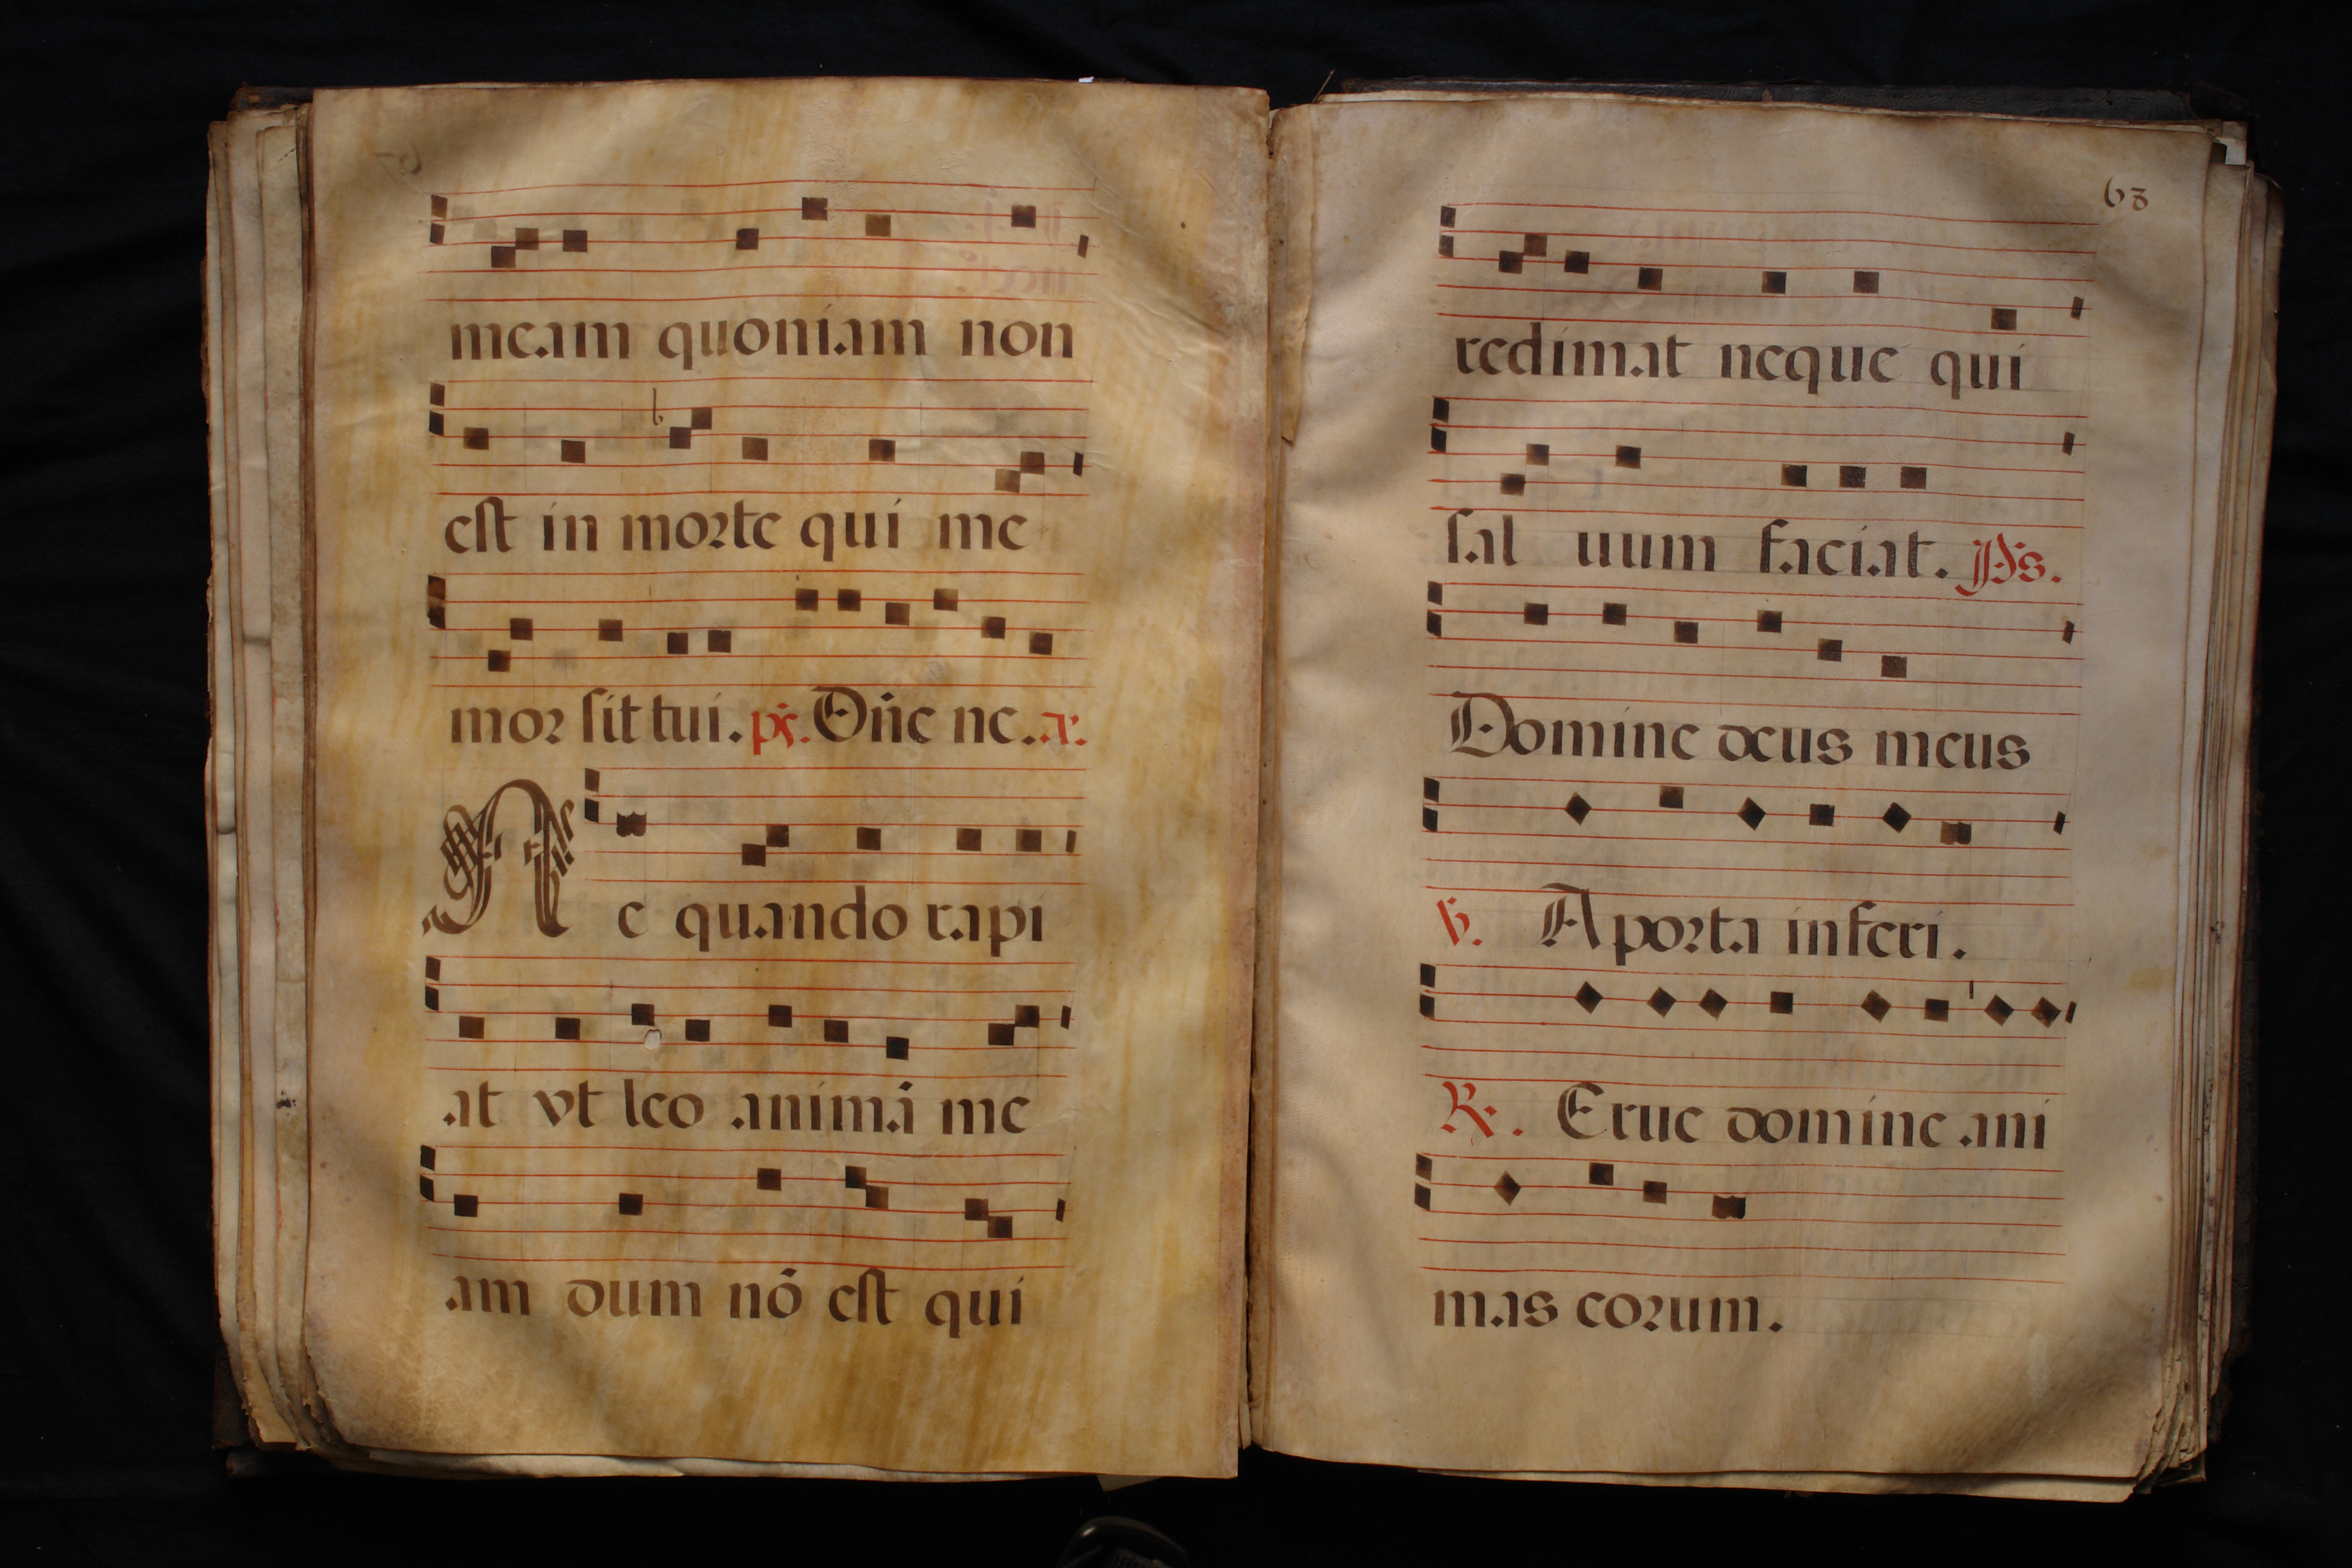 meam quoniam non
est in morte qui me
mor sit tui. ps. Dñe ne. a.
Ne quando rapi
at vt leo animā me
am dum nō est qui
63
redimat neque qui
sal uum faciat. Ps.
Domine deus meus
V. A porta inferi.
R. Erue domine ani
mas eorum.